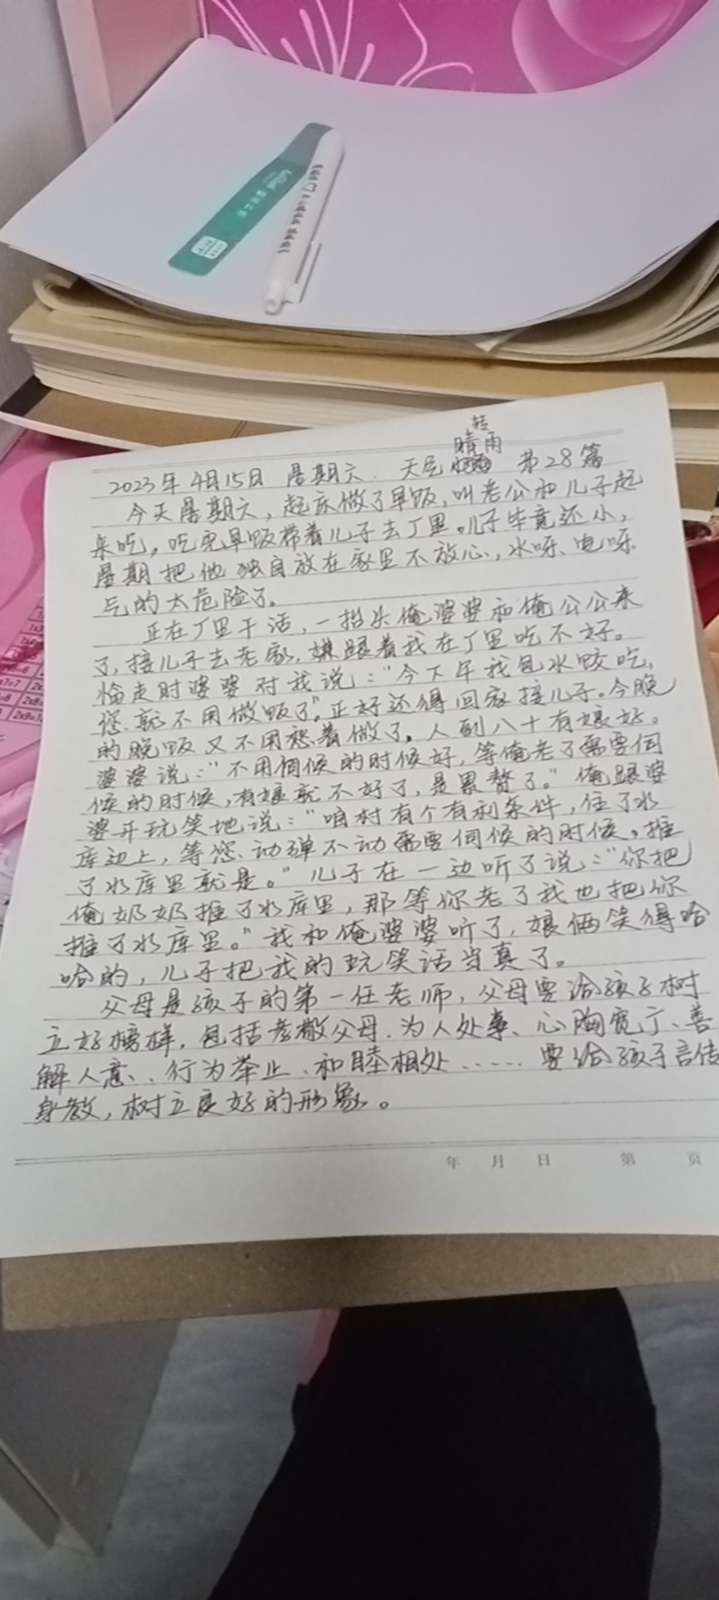 2023年4月15日 星期六. 天气 晴转雨 第28篇
今天星期六，起床做了早饭，叫老公和儿子起
来吃，吃完早饭带着儿子去厂里。儿子毕竟还小，
星期把他独自放在家里不放心，水呀、电呀
气的太危险了。
正在厂里干活，一抬头俺婆婆和俺公公来
了，接儿子去老家，嫌跟着我在厂里吃不好。
临走时婆婆对我说：“今下午我包水饺吃，
您就不用做饭了”。正好还得回家接儿子。今晚
的晚饭又不用愁着做了。人到八十有娘好。
婆婆说：“不用伺候的时候好，等俺老了需要伺
候的时候，有娘就不好了，是累赘了。”俺跟婆
婆开玩笑地说：“咱村有个有利条件，住了水
库边上，等您动弹不动需要伺候的时候。推
了水库里就是。”儿子在一边听了说：“你把
俺奶奶推了水库里，那等你老了我也把你
推了水库里。”我和俺婆婆听了，娘俩笑得哈
哈的，儿子把我的玩笑话当真了。
父母是孩子的第一任老师，父母要给孩子树
立好榜样，包括孝敬父母、为人处事、心胸宽广、善
解人意、行为举止、和睦相处……要给孩子言传
身教，树立良好的形象。
年 月 日 第 页